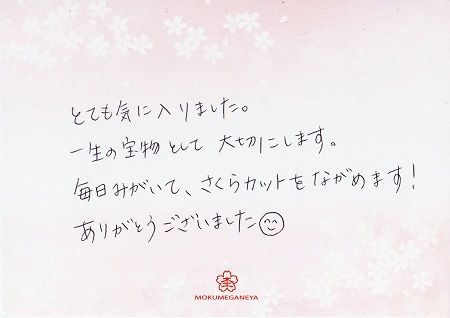 とても気に入りました。
一生の宝物として 大切にします。
毎日みがいて、さくらカットをながめます!
ありがとうございました
MOKUMEGANEYA